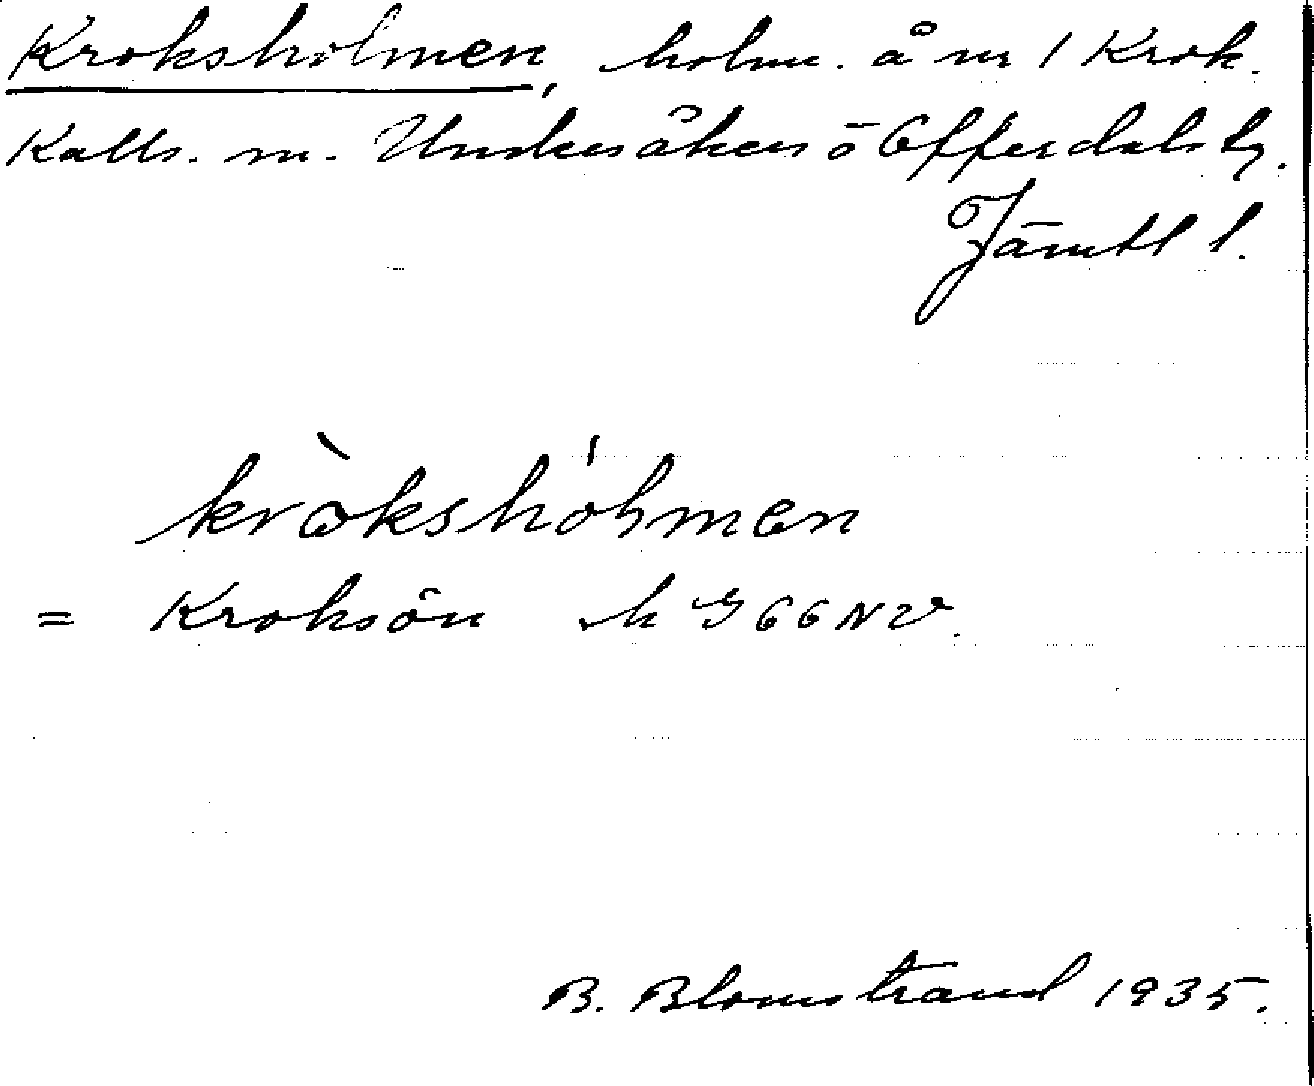 Kroksholmen, holm. å nr 1 Krok.
Kalls. sn. Undersåkers o Offerdals tg.
Jämtl l.
kròkshòlmen
= Kroksön k G 66 NV.
B. Blomstrand 1935.